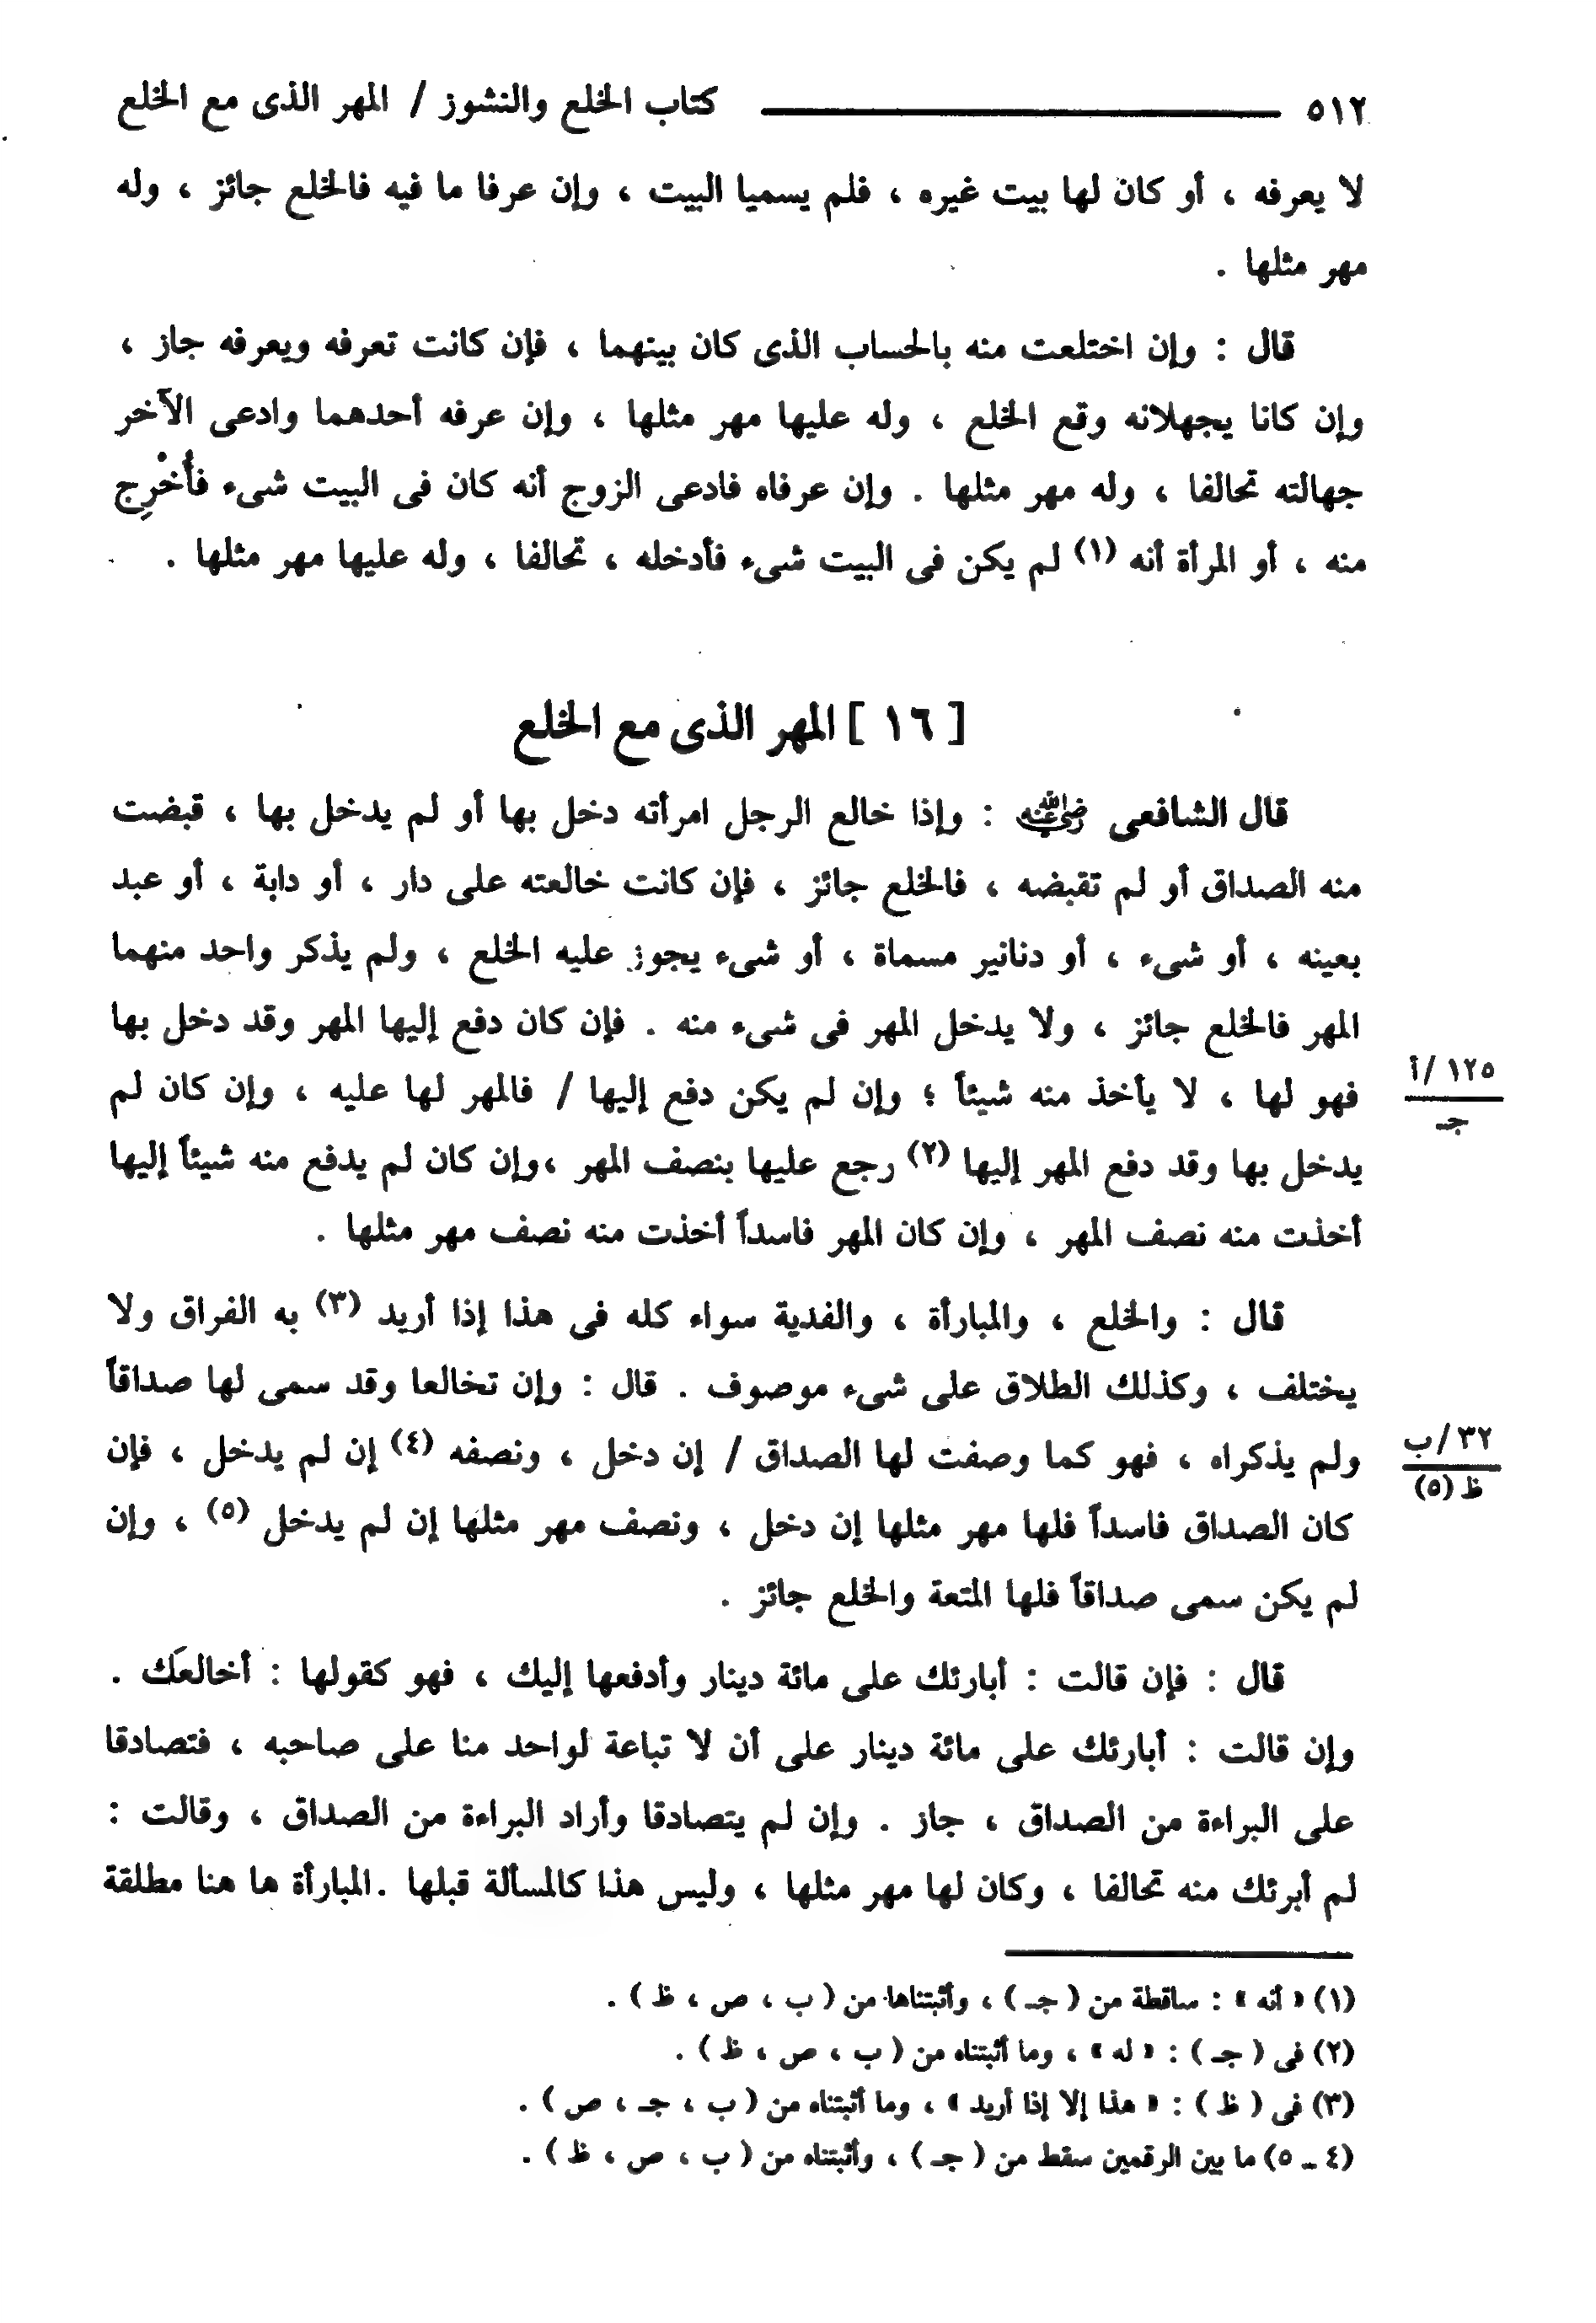 ٥١٢ كتاب الخلع والنشوز / المهر الذى مع الخلع
لا يعرفه ، أو كان لها بيت غيره ، فلم يسميا البيت ، وإن عرفا ما فيه فالخلع جائز ، وله
مهر مثلها .
قال : وإن اختلعت منه بالحساب الذى كان بينهما ، فإن كانت تعرفه ويعرفه جاز ،
وإن كانا يجهلانه وقع الخلع ، وله عليها مهر مثلها ، وإن عرفه أحدهما وادعى الآخر
جهالته تحالفا ، وله مهر مثلها . وإن عرفاه فادعى الزوج أنه كان فى البيت شىء فأُخْرِج
منه ، أو المرأة أنه (١) لم يكن فى البيت شىء فأدخله ، تحالفا ، وله عليها مهر مثلها .
[ ١٦ ] المهر الذى مع الخلع
قال الشافعى رضي الله عنه : وإذا خالع الرجل امرأته دخل بها أو لم يدخل بها ، قبضت
منه الصداق أو لم تقبضه ، فالخلع جائز ، فإن كانت خالعته على دار ، أو دابة ، أو عبد
بعينه ، أو شىء ، أو دنانير مسماة ، أو شىء يجوز عليه الخلع ، ولم يذكر واحد منهما
المهر فالخلع جائز ، ولا يدخل المهر فى شىء منه . فإن كان دفع إليها المهر وقد دخل بها
فهو لها ، لا يأخذ منه شيئاً ؛ وإن لم يكن دفع إليها / فالمهر لها عليه ، وإن كان لم
١٢٥ /أ
جـ
يدخل بها وقد دفع المهر إليها (٢) رجع عليها بنصف المهر ،وإن كان لم يدفع منه شيئاً إليها
أخذت منه نصف المهر ، وإن كان المهر فاسداً أخذت منه نصف مهر مثلها .
قال : والخلع ، والمبارأة ، والفدية سواء كله فى هذا إذا أريد (٣) به الفراق ولا
يختلف ، وكذلك الطلاق على شىء موصوف . قال : وإن تخالعا وقد سمى لها صداقاً
ولم يذكراه ، فهو كما وصفت لها الصداق / إن دخل ، ونصفه (٤) إن لم يدخل ، فإن
٣٢ /ب
ظ (٥)
كان الصداق فاسداً فلها مهر مثلها إن دخل ، ونصف مهر مثلها إن لم يدخل (٥) ، وإن
لم يكن سمى صداقاً فلها المتعة والخلع جائز .
قال : فإن قالت : أبارئك على مائة دينار وأدفعها إليك ، فهو كقولها : أخالعَك .
وإن قالت : أبارئك على مائة دينار على أن لا تباعة لواحد منا على صاحبه ، فتصادقا
على البراءة من الصداق ، جاز . وإن لم يتصادقا وأراد البراءة من الصداق ، وقالت :
لم أبرئك منه تحالفا ، وكان لها مهر مثلها ، وليس هذا كالمسألة قبلها .المبارأة ها هنا مطلقة
(١) « أنه » : ساقطة من ( جـ ) ، وأثبتناها من ( ب ، ص ، ظ ) .
(٢) فى ( جـ ) : « له » ، وما أثبتناه من ( ب ، ص ، ظ ) .
(٣) فى ( ظ ) : « هذا إلا إذا أريد » ، وما أثبتناه من ( ب ، جـ ، ص ) .
(٤ ـ ٥) ما بين الرقمين سقط من ( جـ ) ، وأثبتناه من ( ب ، ص ، ظ ) .